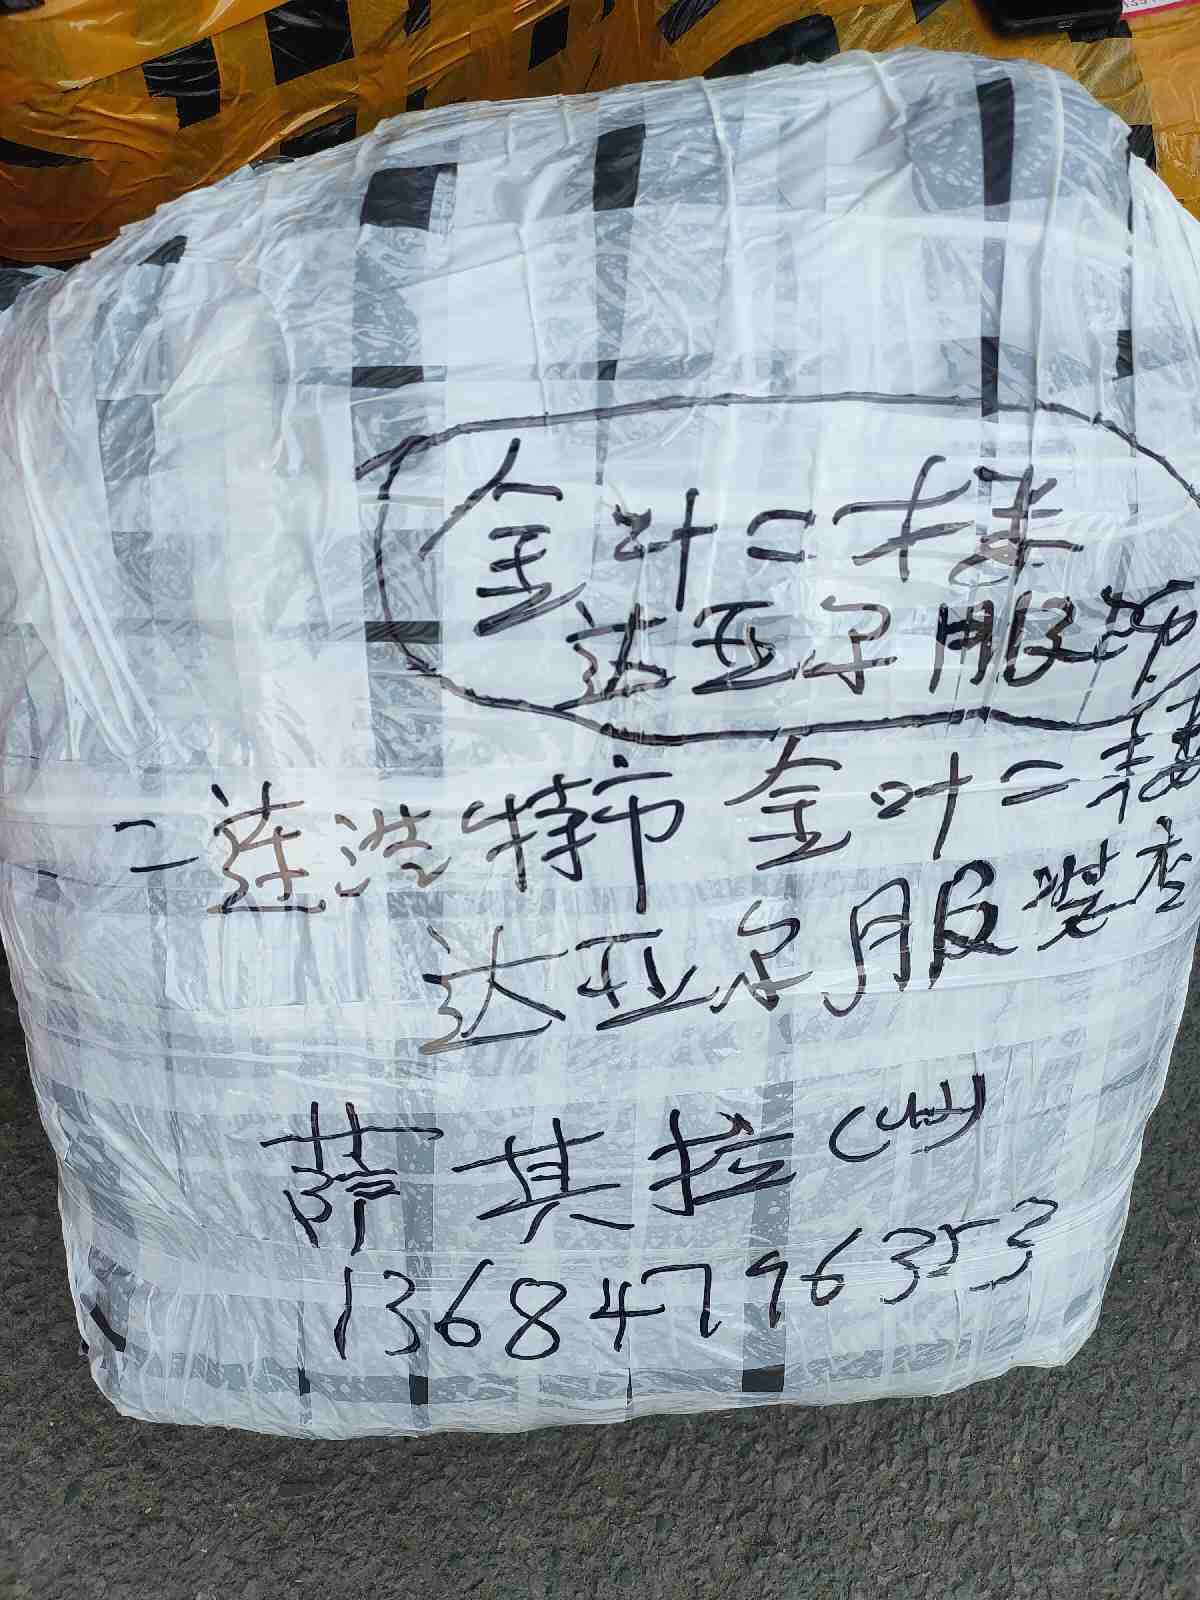 金叶二楼
达亚尔服饰
二连浩特市 金叶二楼
达亚尔服装店
萨其拉(收)
13684796353